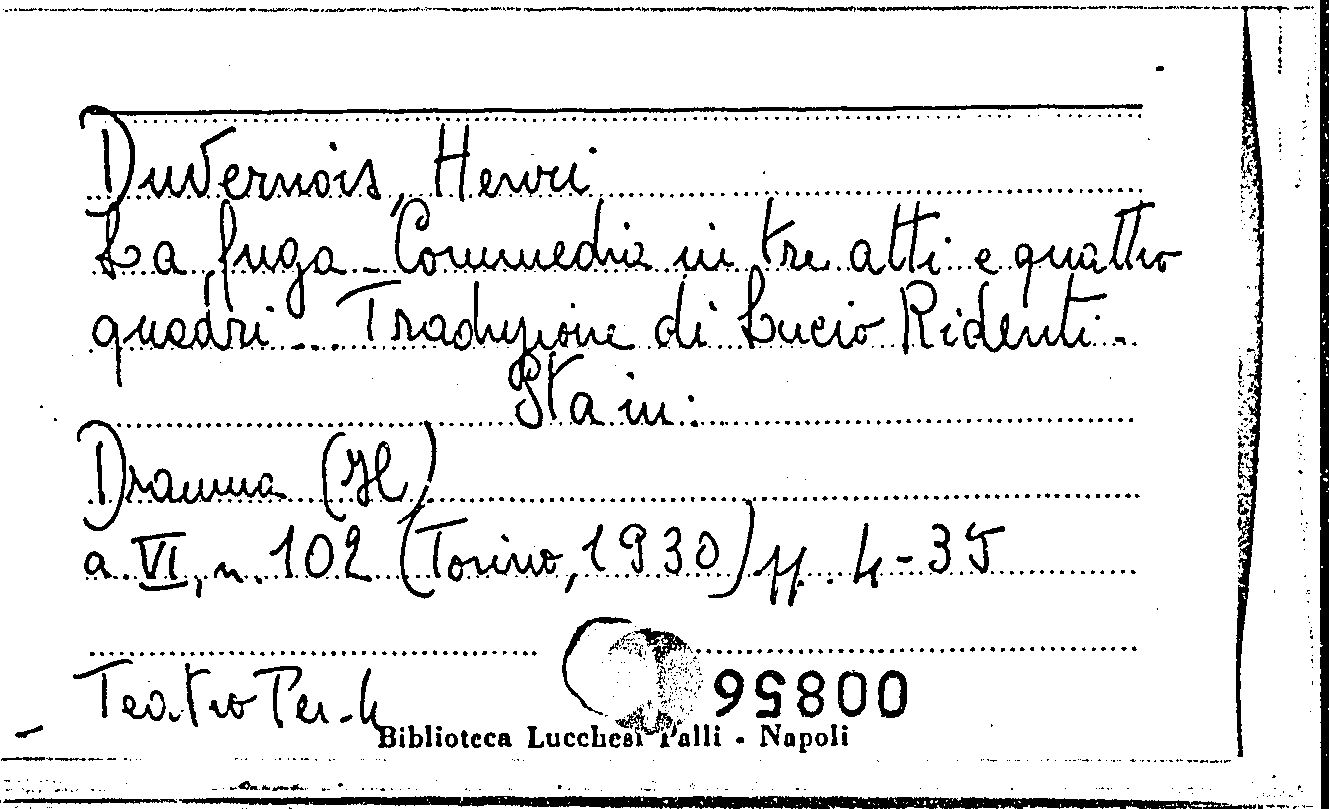 Duvernois, Henri
La fuga - Commedia in tre atti e quattro
quadri... Traduzione di Lucio Ridenti -
Sta in:
Dramma (Il)
a. VI, n. 102 (Torino, 1930) pp. 4-35
Teatro Per. 4
00856
Biblioteca Lucchesi Palli - Napoli